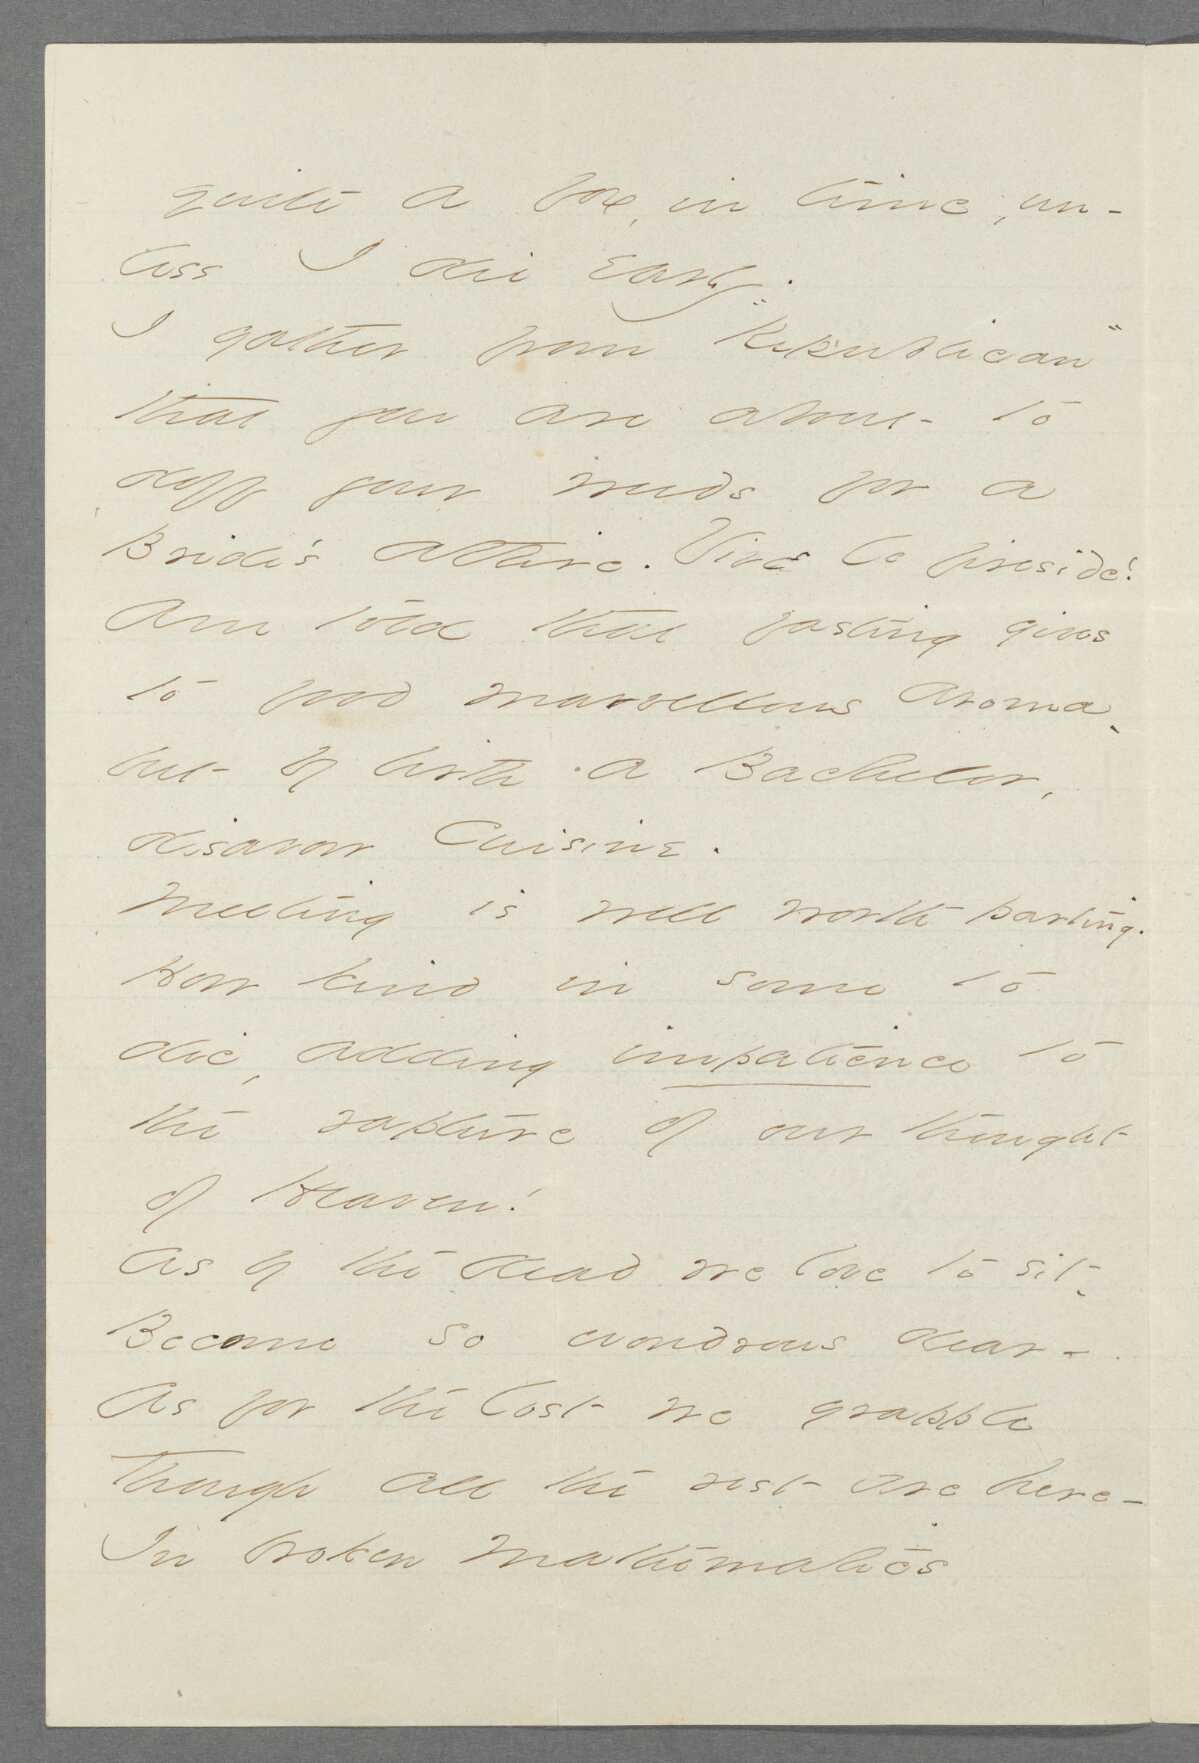 quite a fox, in time, un-
less I die early.
I gather from "Republican"
that you are about to
doff your weeds for a
Bride's attire. Vive le fireside!
Am told that fasting gives
to food marvellous aroma,
but by birth a Bachelor,
disavow Cuisine.
Meeting is well worth parting.
How kind in some to
die, adding impatience to
the rapture of our thought
of Heaven!
As by the dead we love to sit,
Become so wondrous dear -
As for the lost we grapple
Though all the rest are here -
In broken Mathematics